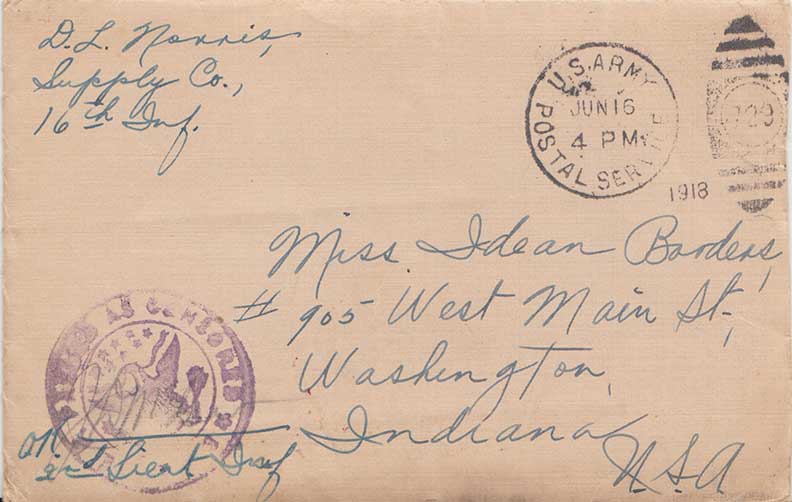 D. L. Norris,
Supply Co.,
16th Inf.
U.S. ARMY
POSTAL SERVICE
JUN 16
4 PM
1918
729
Miss Idean Borders,
# 905 West Main St.,
Washington,
Indiana
U.S.A
PASSED AS CENSORED
OK
2nd Lieut Inf